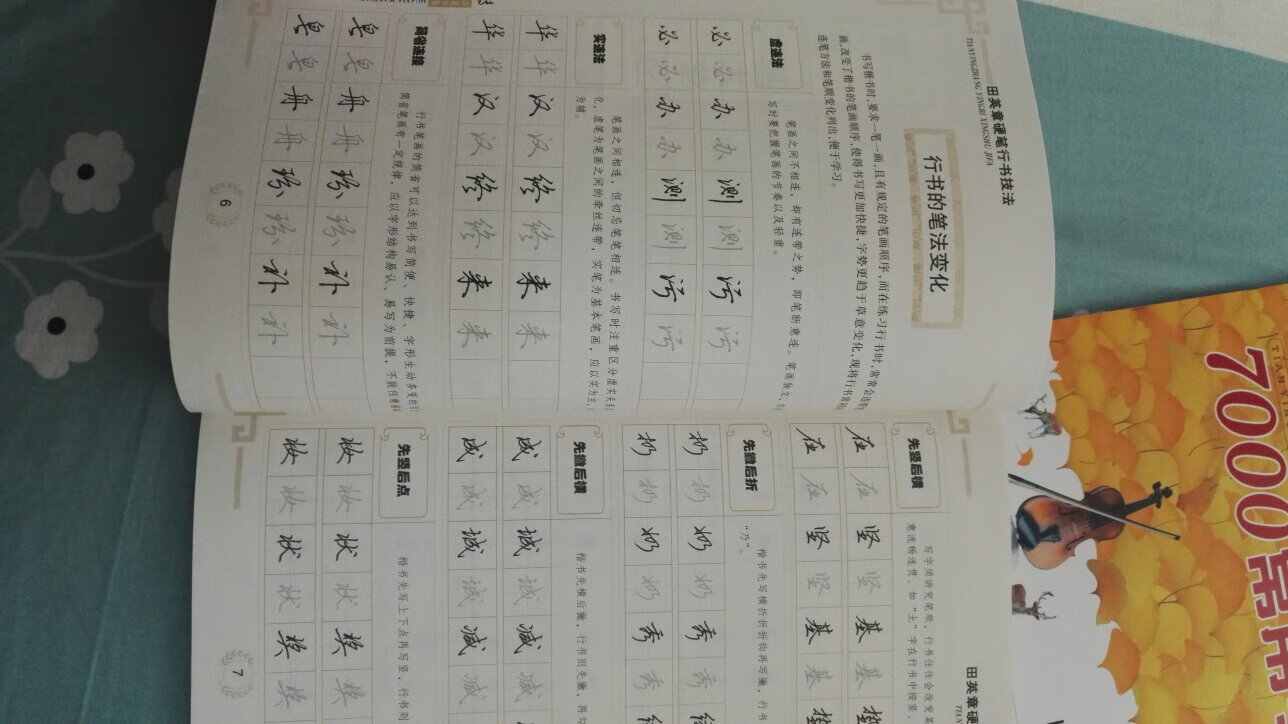 田英章硬笔行书技法
TIANYINGZHANG YINGBI XINGSHU JIFA
行书的笔法变化
书写楷书时,要求一笔一画,且有规定的笔画顺序,而在练习行书时,常常会
画,改变了楷书的笔画顺序,使得书写更加快捷,字势更趋于草意变化,现将行书
连笔方法和笔顺变化列出,便于学习。
虚连法
笔画之间不相连,却有连带之势,即笔断意连。笔画独立,
写时要把握笔画的节奏以及轻重。
必 必 办 办 测 测 污 污
必 必 办 办 测 测 污 污
实连法
笔画之间相连,但切忌笔笔相连。书写时注重区分虚实关系
化,虚笔为笔画之间的牵丝连带,实笔为基本笔画,应以实为主,
为辅。
华 华 汉 汉 终 终 来 来
华 华 汉 汉 终 终 来 来
简省连接
行书笔画的简省可以达到书写简便、快捷、字形生动多变的
简省笔画有一定规律,应以字形结构易认、易写为前提,不能任意
皂 皂 舟 舟 珍 珍 补 补
皂 皂 舟 舟 珍 珍 补 补
6
田英章硬
先竖后横
写字须讲究笔顺,行书往往会改变某
意流畅连贯,如“土”字在行书中按竖、
在 在 坚 坚 基 基
在 在 坚 坚 基 基
先撇后折
楷书先写横折折折钩再写撇,行书
“乃”。
扔 扔 奶 奶 秀 秀
扔 扔 奶 奶 秀 秀
先撇后横
楷书先横后撇,行书则先撇,再
成 成 诚 诚 减 减
成 成 诚 诚 减 减
先竖后点
楷书先写上下点再写竖,行书则
妆 妆 状 状 奖 奖
妆 妆 状 状 奖 奖
7
7000常用